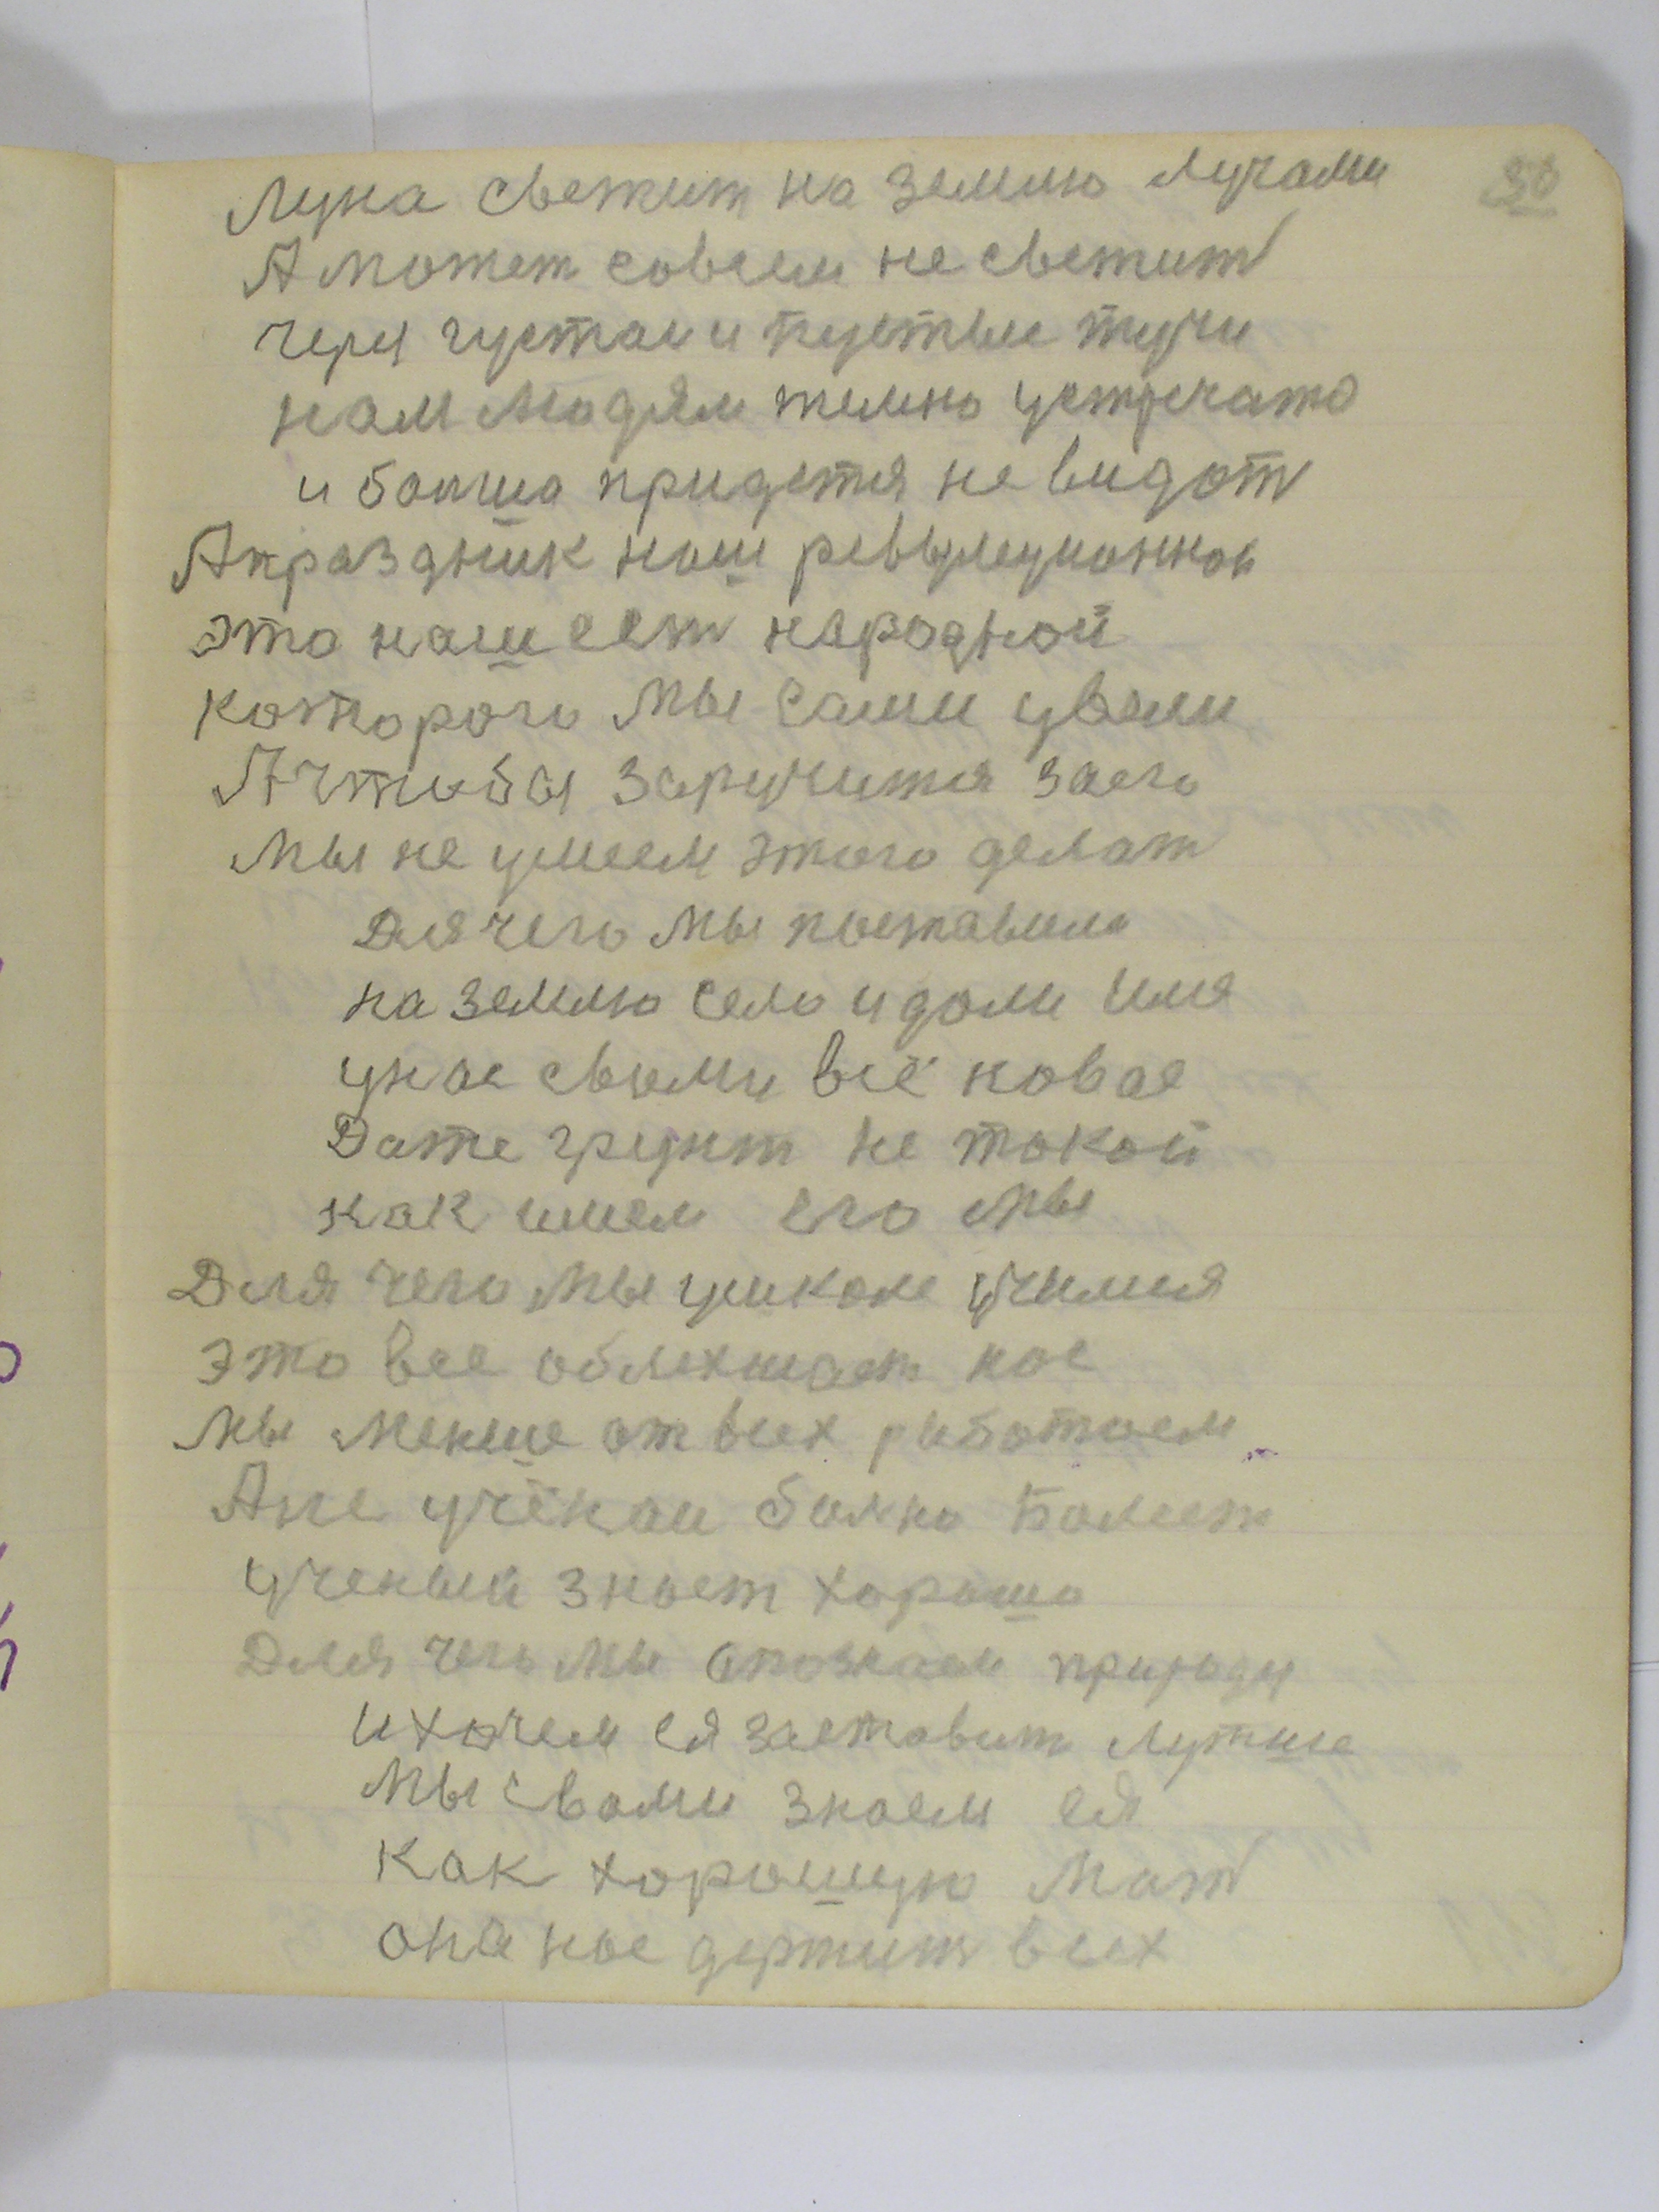 Луна светит на землю лучами
30
А может совсем не светит
через густые и пустые тучи
нам людям темно устречатъ
и болша придется не видат
А праздник наш революционной
это наш ест народной
которого мы сами увели
А чтобы заручится заего
мы не умеем этого делат
Для чего мы поставили
на землю село и доми имя
унас своми всё новае
Даже грунт не такой
как имем его мы
Для чего мы ушколе учимся
это все облехшает нас
мы менше от всех работаем
Ане учёнаи болно болеет
ученый знает хорошо
Для чего мы спознаем природу
и хочем ея заставит лутше
мы свами знаем ея
как хорошую мат
она нас держит всех